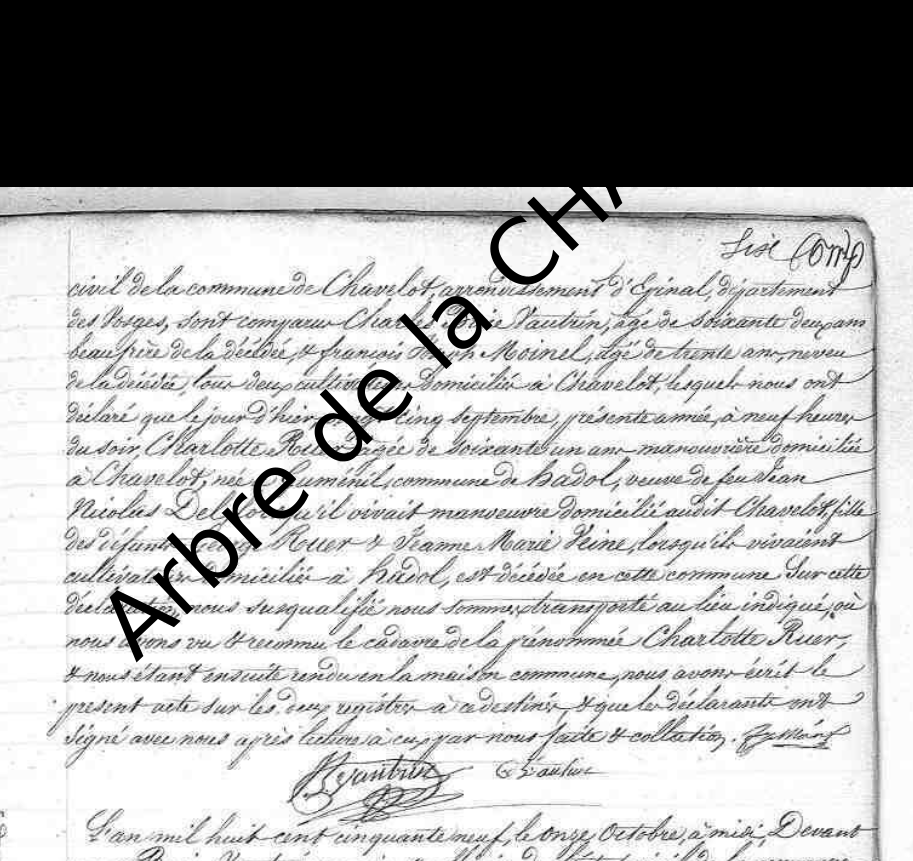 Arbre de la CHA
civil de la commune de Chavelot, arrondissement d'Epinal, département
des Vosges, sont comparus Charles Vautrin, agé de soixante deux ans
beau frère de la décédée, & françois Joseph Moinel, agé de trente ans, neveu
de la décédée, tous deux cultivateurs domiciliés à Chavelot, lesquels nous ont
déclaré que le jour d'hier cinq septembre, présente année, à neuf heures
du soir, Charlotte Ruer agée de soixante un ans manouvrière domiciliée
à Chavelot, née à Guménil, commune de hadol, veuve de feu Jean
Nicolas lorsqu'il vivait manoeuvre domicilié audit Chavelot, fille
des défunts Ruer & Jeanne Marie Heine, lorsqu'ils vivaient
cultivateurs domiciliés à hadol, est décédée en cette commune. Sur cette
déclaration, nous susqualifié nous sommes transporté au lieu indiqué, où
nous avons vu & reconnu le cadavre de la prénommée Charlotte Ruer,
& nous étant ensuite rendu en la maison commune, nous avons écrit le
présent acte sur les deux registres à ce destinés, & que les déclarants ont
signé avec nous après lecture à eux par nous faite & collation.
Vautrin
L'an mil huit cent cinquante neuf, le onze Octobre, à midi, Devant